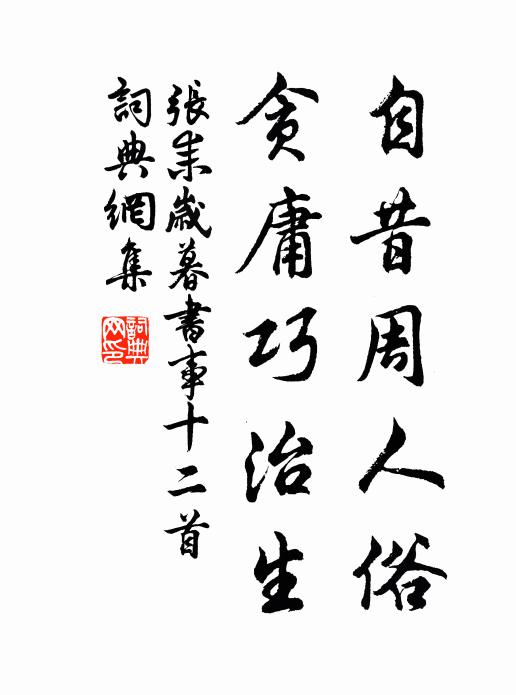 自昔周人俗
貪庸巧治生
張耒歲暮書事十二首
詞典網集
詞典網印